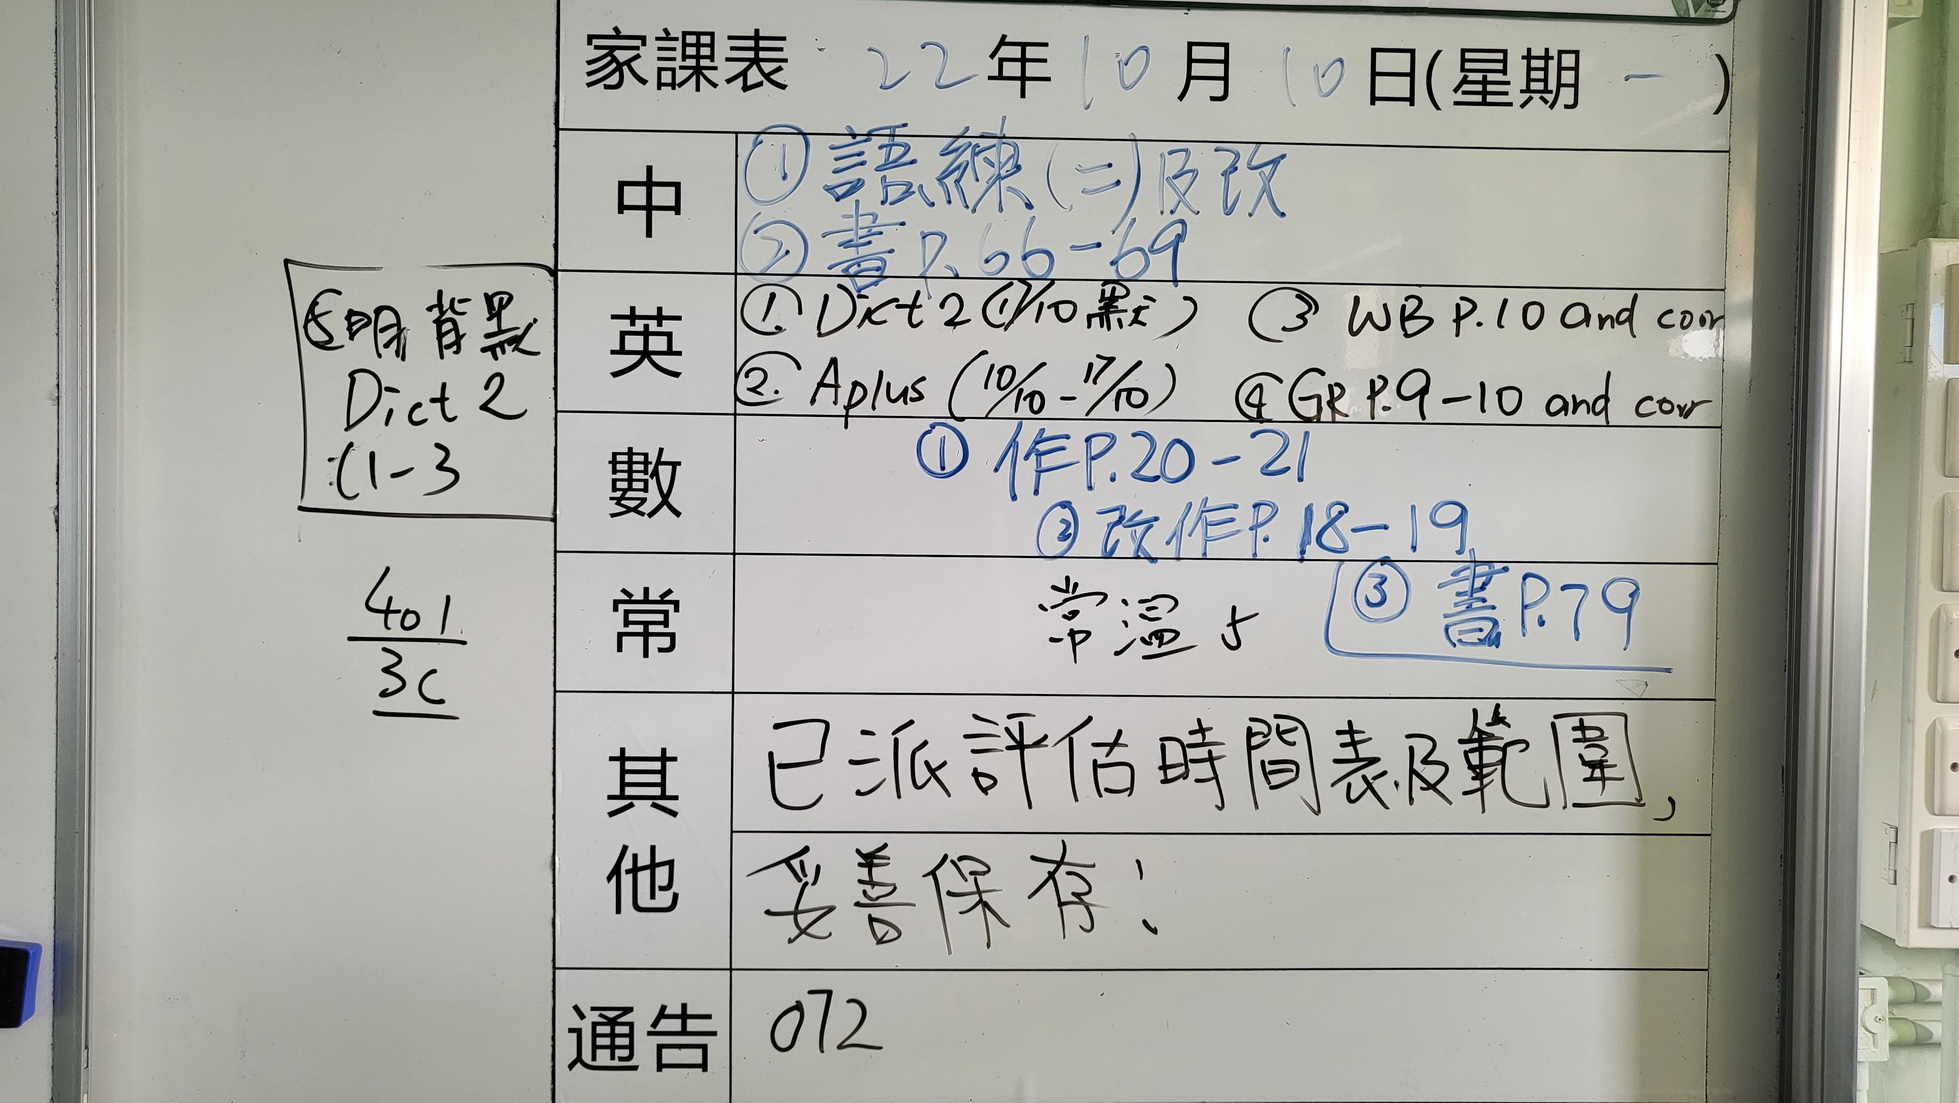 家課表 22年10月10日(星期一)
中
①語練(二)及改
②書P.66-69
英
① Dict 2 (17/10默) ③ WB P.10 and corr
②. Aplus (10/10-17/10) ④ GR P.9-10 and corr
⑤明背默
Dict 2
(1-3
數
① 作P.20-21
②改作P.18-19
③ 書P.79
常
常溫5
401
3C
其他
已派評估時間表及範圍,
妥善保存!
通告
072